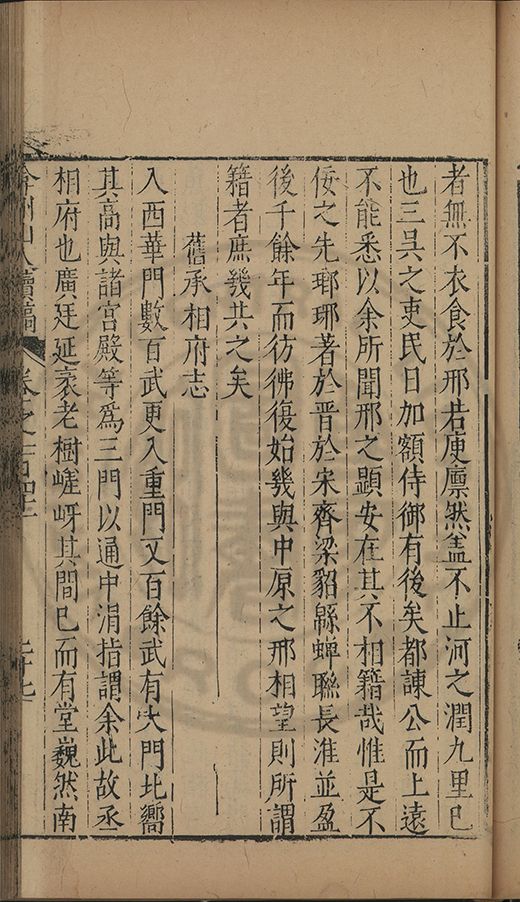 者無不衣食於邢若庾廩然蓋不止河之潤九里已
也三吳之吏民日加額侍御有後矣都諫公而上遠
不能悉以余所聞邢之顯安在其不相籍哉惟是不
佞之先瑯琊著於晉於宋齊梁貂緜蟬聯長淮並盈
後千餘年而彷彿復始幾與中原之邢相望則所謂
籍者庶幾共之矣
舊承相府志
入西華門數百武更入重門又百餘武有大門北嚮
其高與諸宮殿等為三門以通中涓指謂余此故丞
相府也廣廷延袤老樹嵯岈其間已而有堂巍然南
弇州山人續稿 卷之一百四十